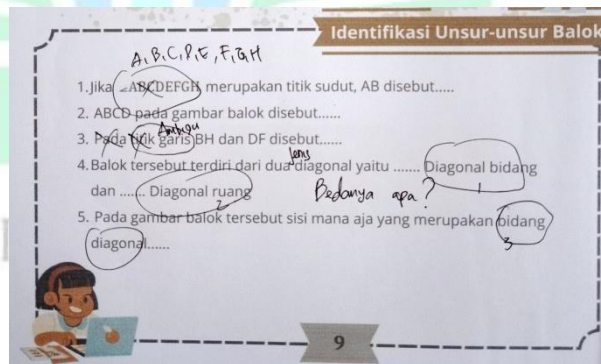 Identifikasi Unsur-unsur Balok
A, B, C, D, E, F, G, H
1.Jika ∠ABCDEFGH merupakan titik sudut, AB disebut.....
2. ABCD pada gambar balok disebut......
Ambigu
3. Pada titik garis BH dan DF disebut......
jenis
4.Balok tersebut terdiri dari dua diagonal yaitu ....... Diagonal bidang
1
dan ....... Diagonal ruang
2
Bedanya apa?
5. Pada gambar balok tersebut sisi mana aja yang merupakan bidang
3
diagonal......
9